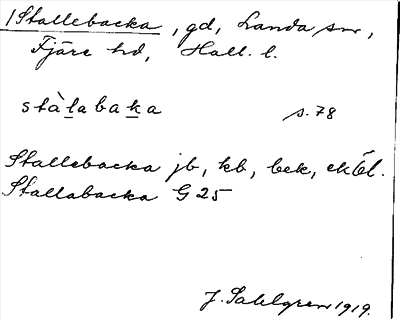 /Stallebacka, gd, Landa sn,
Fjäre hd, Hall. l.
stàlabaka s. 78
Stallebacka jb, kb, bek,
Stallabacka G 25
J. Sahlgren 1919.